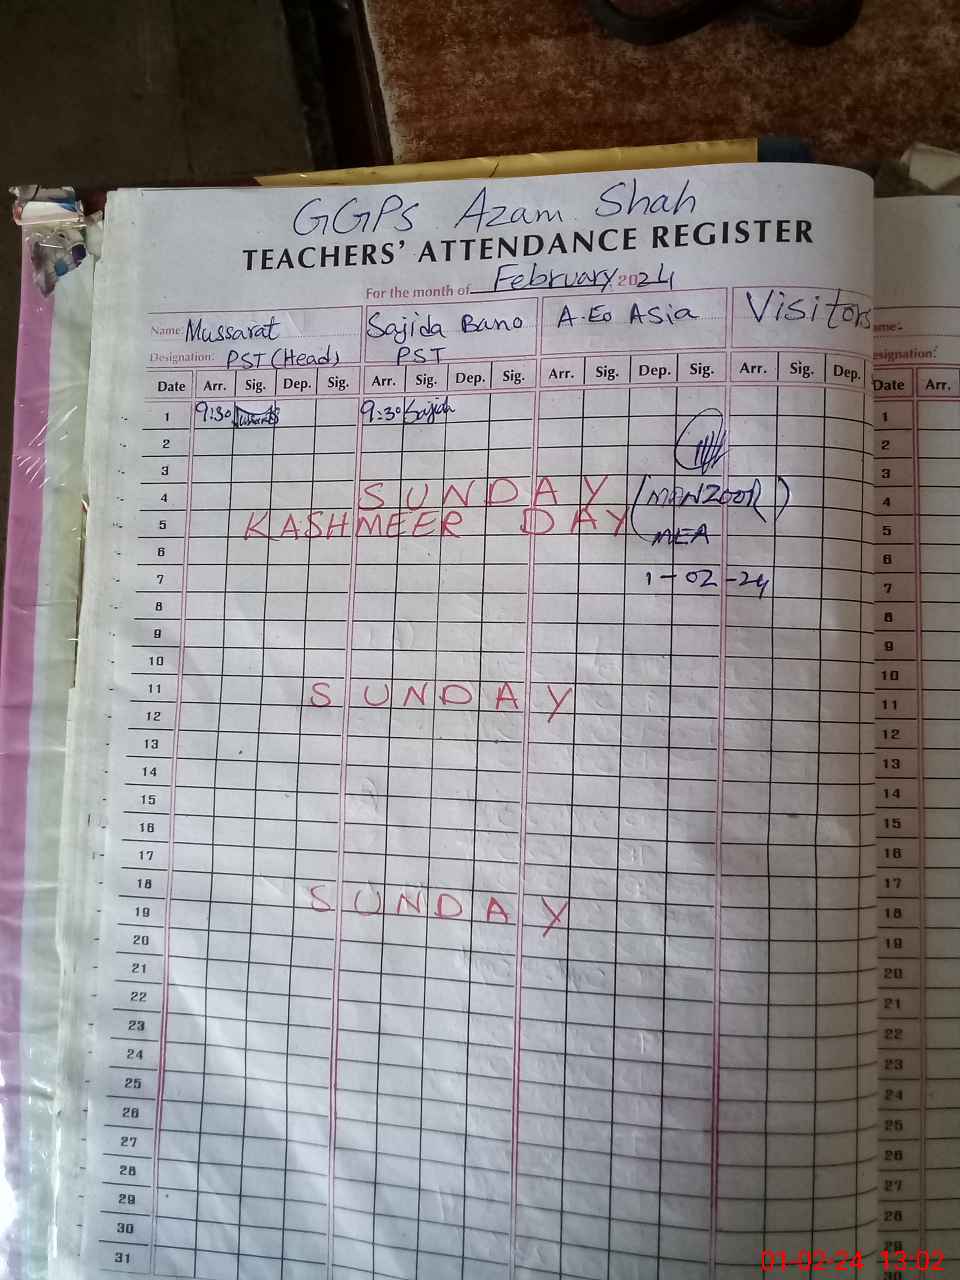 GGPS Azam Shah
TEACHERS' ATTENDANCE REGISTER
For the month of February 2024
Name: Mussarat Sajida Bano A.Eo Asia Visitors
Designation: PST (Head) PST
Date Arr. Sig. Dep. Sig. Arr. Sig. Dep. Sig. Arr. Sig. Dep. Sig. Arr. Sig. Dep.
1 9:30 9:30 Sajida
2
3
4 SUNDAY (MANZOOR)
5 KASHMEER DAY MEA
6
7 1-02-24
8
9
10
11 SUNDAY
12
13
14
15
16
17
18 SUNDAY
19
20
21
22
23
24
25
26
27
28
29
30
31
ame:
esignation:
Date Arr.
1
2
3
4
5
6
7
8
9
10
11
12
13
14
15
16
17
18
19
20
21
22
23
24
25
26
27
28
29
01-02-24 13:02